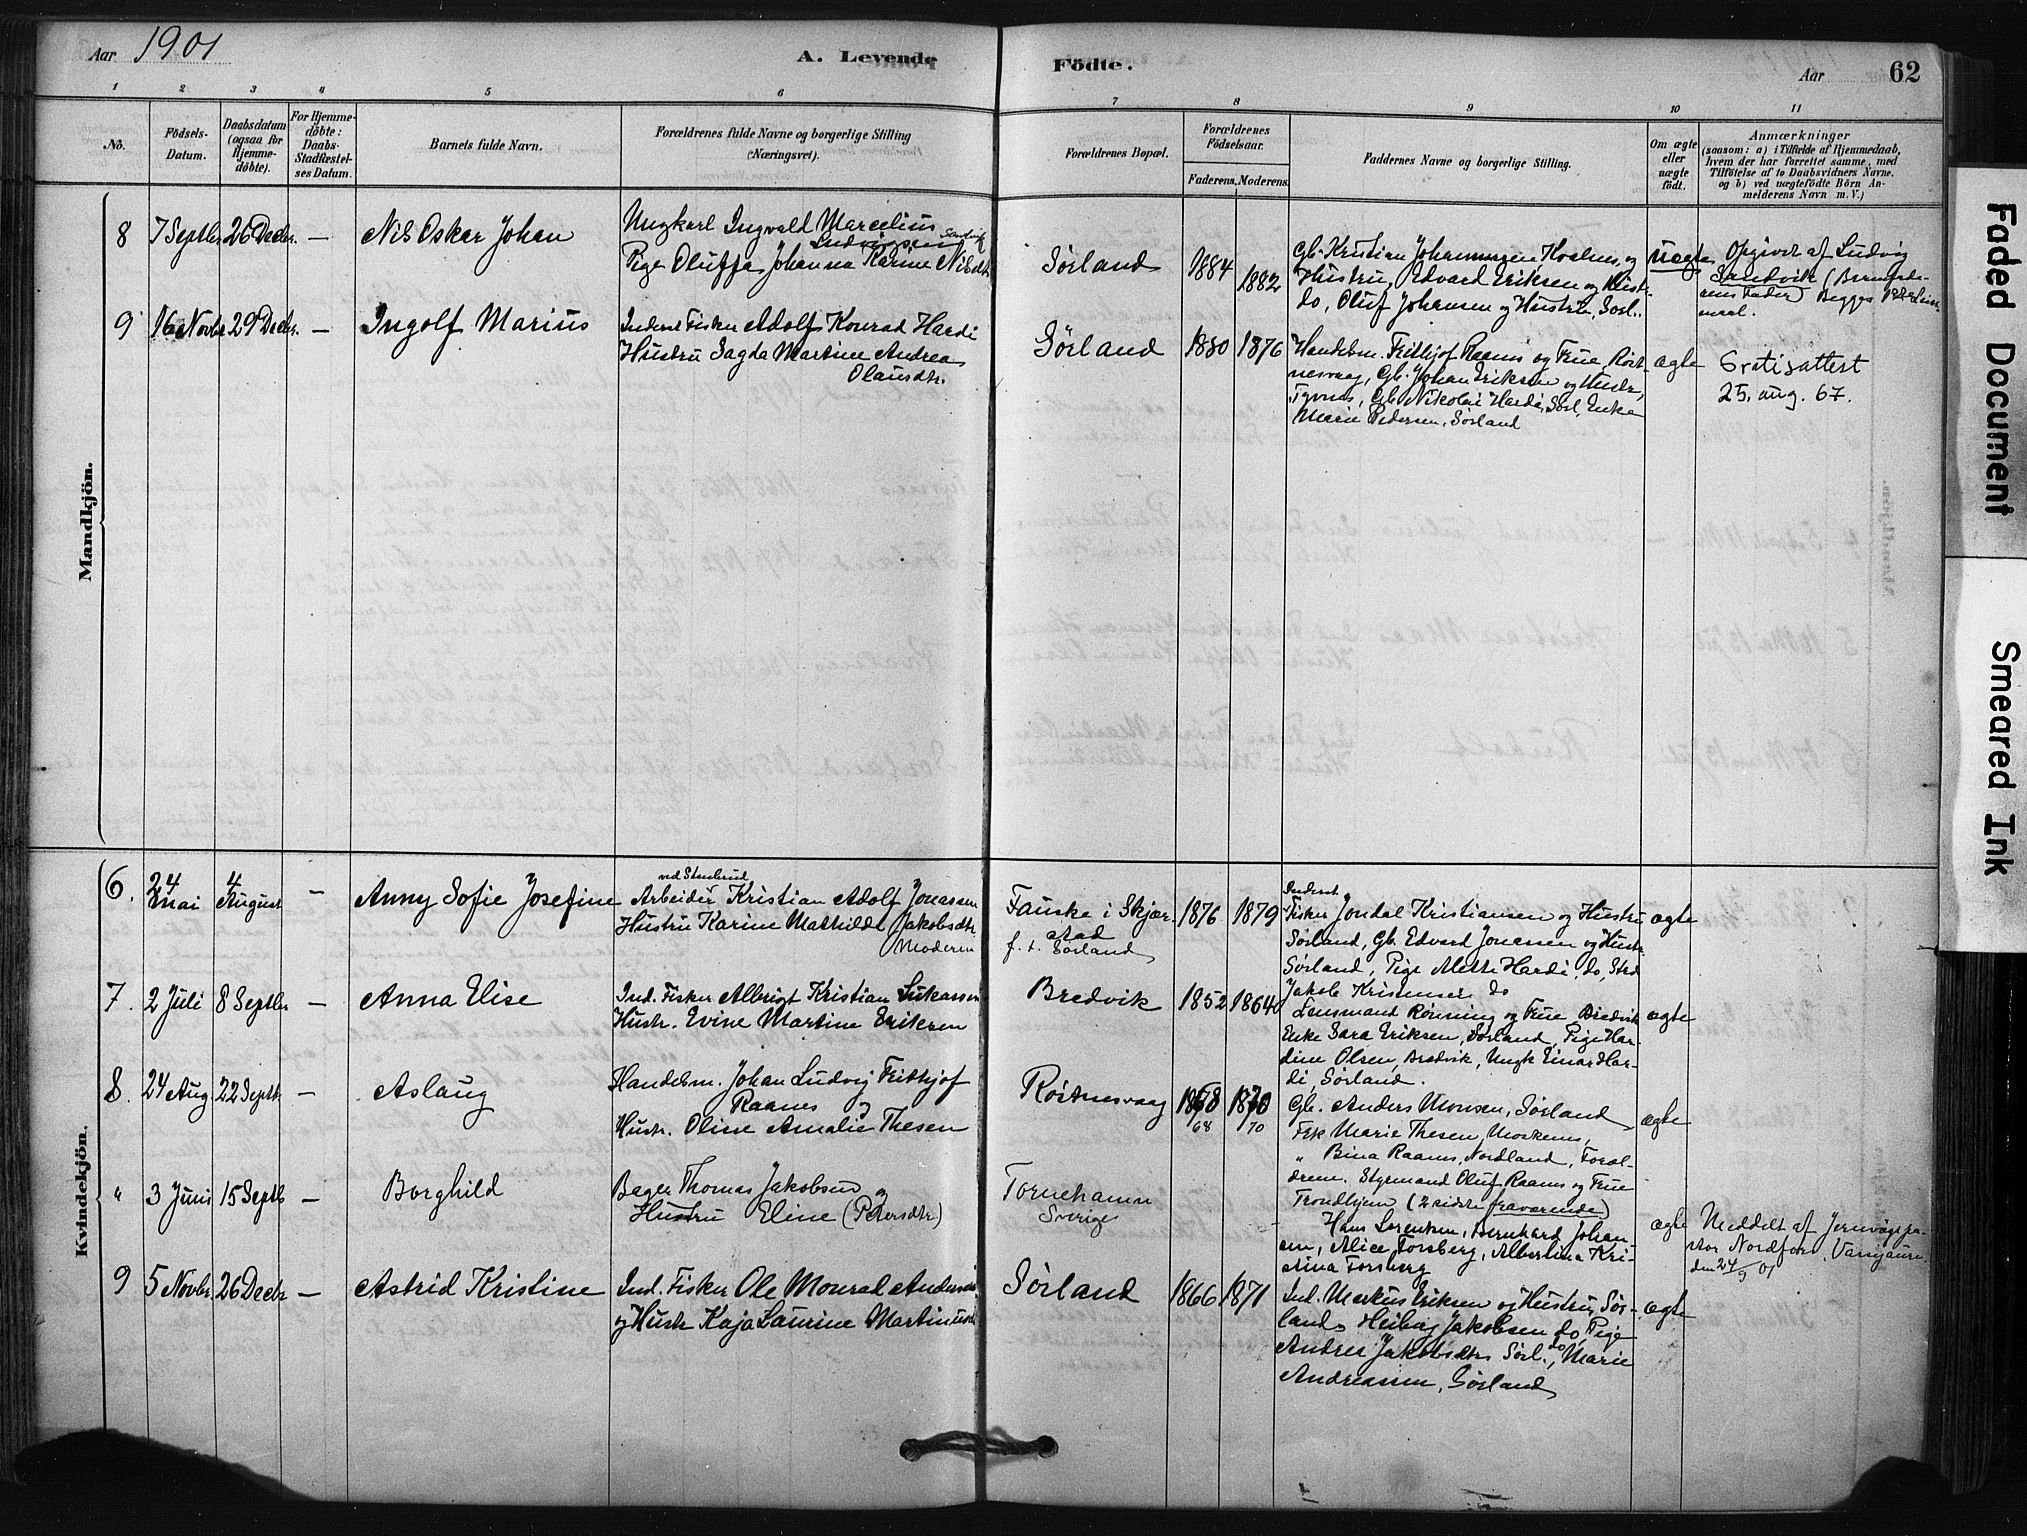 Aar 1901
A. Levende Födte.
Aar 62
1 2 3 4 5 6 7 8 9 10 11
Nö.
Födsels-Datum.
Daabsdatum (ogsaa for Hjemmedöbte).
For Hjemmedöbte: Daabs-Stadfæstelses Datum.
Barnets fulde Navn.
Forældrenes fulde Navne og borgerlige Stilling (Næringsvei).
Forældrenes Bopæl.
Forældrenes Födselsaar.
Faderens. Moderens.
Faddernes Navne og borgerlige Stilling.
Om ægte eller uægte födt.
Anmærkninger
(saasom: a) i Tilfælde af Hjemmedaab,
hvem der har forrettet samme, med
Tilföielse af to Daabsvidners Navne.
og b) ved uægtefödte Börn An-
melderens Navn m. V.)
Mandkjön.
8 7 Septbr 26 Decbr. — Nils Oskar Johan
Ungkarl Ingvald Marcelius
Ludvigsen Sandvik
Pige Oluffa Johanna Karine Nilsdtr
Sörland 1884 1882
Gb. Kristian Johannessen Kvalnes, og
Hustru, Edvard Eriksen og Hust-
do, Oluf Johansen og Hustru, Sörl.
uægte
Opgivet af Ludvig
Sandvik (Barnefade-
rens Fader) Begges 1ste Leier-
maal.
9 16 Novbr 29 Decbr. — Ingolf Marius
Inderst Fisker Adolf Konrad Hardi
Hustru Sagda Martine Andrea
Olausdtr.
Sörland 1880 1876
Handelsm. Frithjof Raanes og Frue, Röst-
nesvaag, Gb. Johan Eriksen og Hustr,
Tyvnes, Gb. Nikolai Hardi, Sörl, Enke
Marie Pedersen, Sörland
ægte
Gratisattest
25. aug. 67.
Kvindekjön.
6. 24 mai 4 August — Anny Sofie Josefine
ved Stenbrud
Arbeider Kristian Adolf Jonassen
Hustru Karine Mathilde Jakobsdtr
Moderen
Fauske i Skjer-
stad
f. t. Sörland
1876 1879
Inderst
Fisker Jondal Kristiansen og Hustru
Sörland, Gb. Edvard Jonassen og Hustr.
Sörland, Pige Mette Hardi, do,
Jakob Kristensen do
ægte
7. 2 Juli 8 Septbr — Anna Elise
Ind. Fisker Albrigt Kristian Lukassen
Hustr. Evine Martine Eriksen
Bredvik 1852 1864
Lensmand Rönning og Frue Bredvik
Enke Sara Eriksen, Sörland, Pige Har-
dine Olsen, Bredvik, Ungk Einar Har-
di, Sörland.
ægte
8. 24 Aug 22 Septbr — Aslaug
Handelsm. Johan Ludvig Frithjof
Raanes og
Hustr. Oline Amalie Thesen
Röstnesvaag 1868 1870
68 70
Gb. Anders Monsen, Sörland
Frk Marie Thesen, Moskenes,
" Bina Raanes, Nordland, Foræl-
drene. Styrmand Oluf Raanes og Frue
Trondhjem (2 sidste fraværende)
ægte
" 3 Juni 15 Septb — Borghild
Bager Thomas Jakobsen og
Hustru Eline (Petersdtr)
Tornehamn
Sverige
Hans Lorentsen, Bernhard Johan-
sen, Alice Forsberg, Albertina Kri-
stina Forsberg
ægte
Meddelt af Jernvägspa-
stor Nordfors, Vassijaure
den 24/9 01
9 5 Novbr. 26 Decbr — Astrid Kristine
Ind. Fisker Ole Monrad Andersen
og Hustr Kaja Laurine Martinusdtr
Sörland 1866 1871
Ind. Markus Eriksen og Hustru, Sör-
land, Heiberg Jakobsen do, Pige
Andrea Jakobsdtr Sörl. do, Marie
Andreassen, Sörland
ægte
Faded Document
Smeared Ink